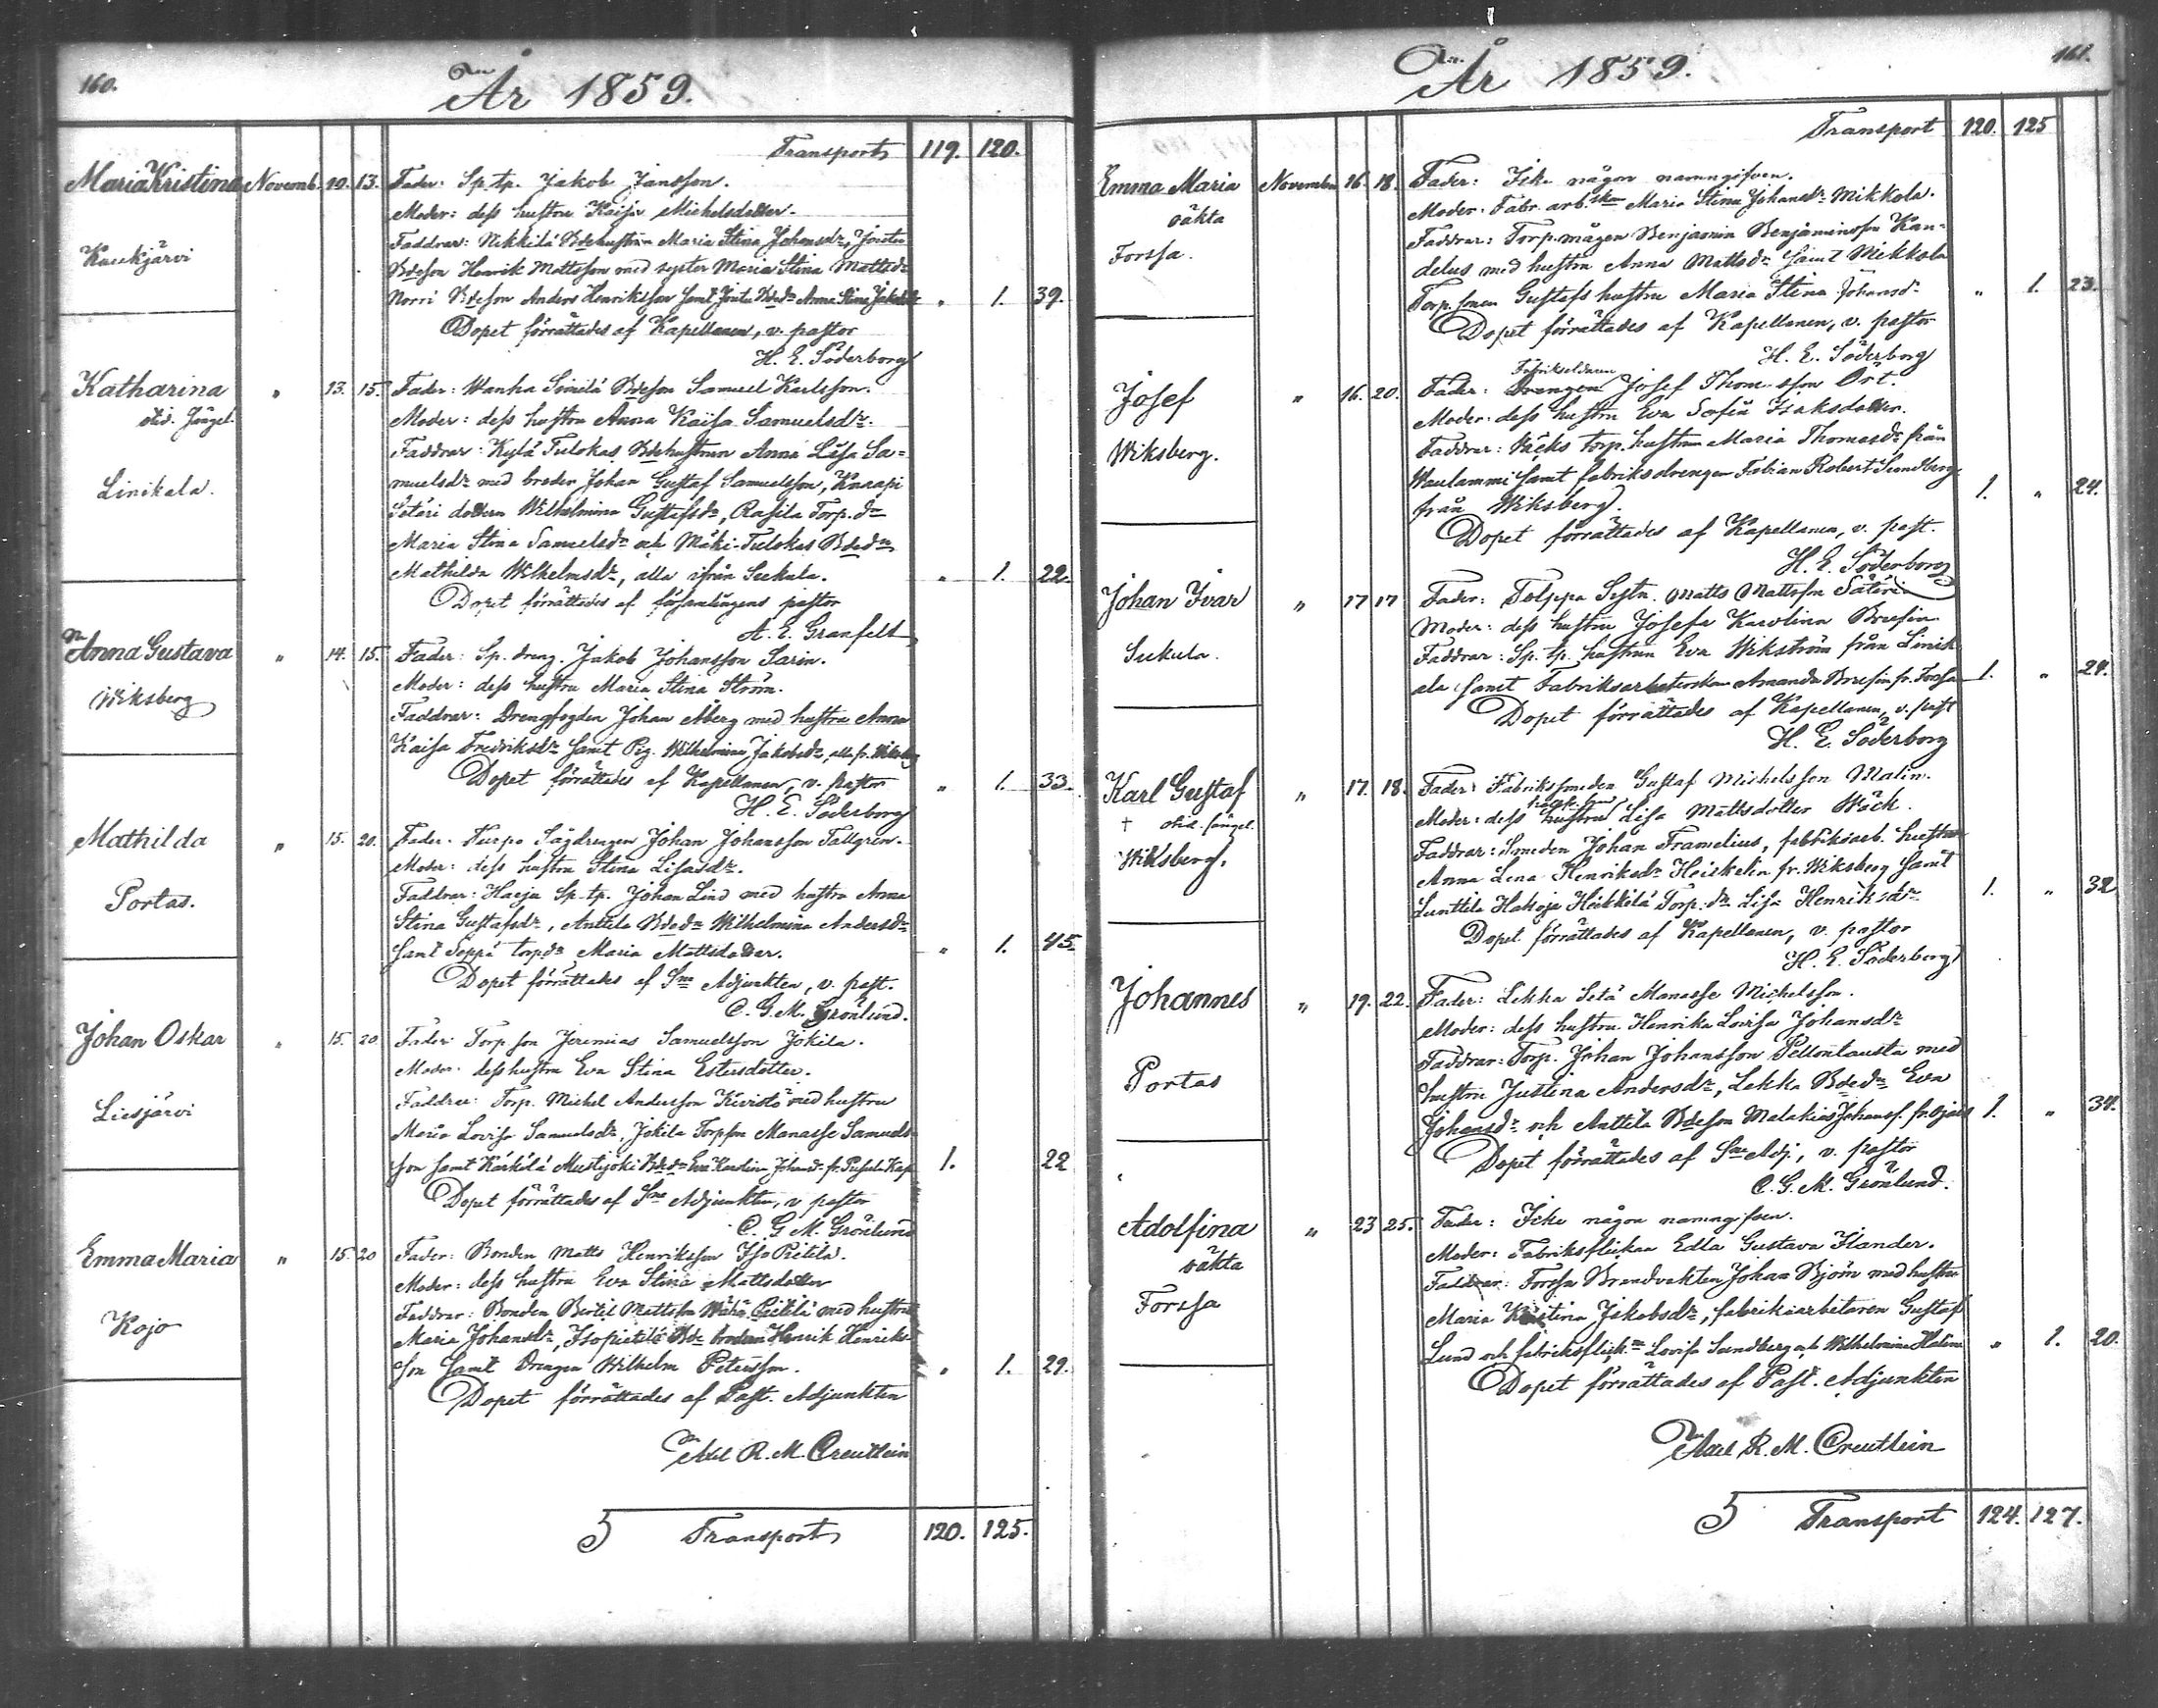 160.
År 1859.
Transport 119. 120.
Maria Kristina Novemb. 10. 13. Fader: Sp. tp. Jakob Jansson.
Moder: dess hustru Kaisa Michelsdotter.
Kaukjärvi
Faddrar: Nikkilä Bdehustrun Maria Stina Johansdr,
Bdeson Henrik Mattsson med syster Maria Stina Mattsdr
Norri Bdeson Anders Henriksson samt Bdedr Anna Stina " 1. 39.
Dopet förrättades af Kapellanen, v. pastor
H. E. Söderborg
Katharina " 13. 15. Fader: Wanha Simila Bdeson Samuel Karlsson.
Moder: dess hustru Anna Kaisa Samuelsdr.
Linikala.
Faddrar: Kylä Tulokas Bdehustrun Anna Lisa Sa-
muelsdr med broder Johan Gustaf Samuelsson, Kuusapi
Säteri dottern Wilhelmina Gustafsdr, Rasila Torp.dr
Maria Stina Samuelsdr och Mäki-Tulokas Bdedr
Mathilda Wilhelmsdr, alla ifrån Sukula. " 1. 22.
Dopet förrättades af församlingens pastor
A. E. Granfelt
Anna Gustava " 14. 15. Fader: Sp. dreng. Jakob Johansson Sarin.
Moder: dess hustru Maria Stina Ström.
Wiksberg
Faddrar: Drengfogden Johan Åberg med hustru Anna
Kaisa Fredriksdr samt Pig. Wilhelmina Jakobsdr, alla fr. Wiksberg
Dopet förrättades af Kapellanen, v. pastor " 1. 33.
H. E. Söderborg
Mathilda " 15. 20. Fader: Kurpo Sågdrengen Johan Johansson Tallgren.
Moder: dess hustru Stina Lisasdr.
Portas.
Faddrar: Harju Sp. tp. Johan Lind med hustru Anna
Stina Gustafsdr, Anttila Bdedr Wilhelmina Andersdr
samt Seppä torpdr Maria Mattsdotter. " 1. 45.
Dopet förrättades af Sne Adjunkten, v. past.
C. G. M. Grönlund.
Johan Oskar " 15. 20 Fader: Torpson Jeremias Samuelsson Jokila.
Moder: dess hustru Eva Stina Estersdotter.
Liesjärvi
Faddrar: Torp. Michel Andersson Kivistö med hustru
Maria Lovisa Samuelsdr, Jokila Torpson Manasse Samuels-
son samt Kärkilä Mustijoki Bdedr Eva Karolina Johansdr fr. Pusula Kap. 1. 22
Dopet förrättades af Sne Adjunkten, v pastor
C. G. M. Grönlund
Emma Maria " 15 20 Fader: Bonden Matts Henriksson Iso Pietilä.
Moder: dess hustru Eva Stina Mattsdotter
Kojo
Faddrar: Bonden Bertil Mattsson Wähä Pietilä med hustru
Maria Johansdr, Isopietilä Bde brodern Henrik Henriks-
son samt Drengen Wilhelm Petersson. " 1. 29.
Dopet förrättades af Past. Adjunkten
Axel R. M. Creutlein
Transport 120. 125.
161.
År 1859.
Transport 120. 125
Emma Maria November 16. 18. Fader: Icke någon namngifven.
oäkta
Moder: Fabr. arb.skan Maria Stina Johansdr Mikkola.
Forssa.
Faddrar: Torp.mågen Benjamin Benjaminsson Kan-
delus med hustru Anna Mattsdr samt Mikkola
Torp. sonen Gustafs hustru Maria Stina Johansdr " 1. 23.
Dopet förrättades af Kapellanen, v. pastor
H. E. Söderborg
Josef " 16. 20. Fader: Drengen Josef Thomasson Ört.
Moder: dess hustru Eva Sofia Isaksdotter.
Wiksberg.
Faddrar: Wäcks torp. hustrun Maria Thomasdr från
Waulammi samt fabriksdrengen Fabian Robert Sundberg
från Wiksberg. 1. " 24.
Dopet förrättades af Kapellanen, v. past.
H. E. Söderborg
Johan Ivar " 17 17 Fader: Tolppa Sytn. Matts Mattsson Säteri
Moder: dess hustru Josefa Karolina Brusin
Sukula.
Faddrar: Sp. tp. hustrun Eva Wikström från Linik
ala samt Fabriksarbeterskan Amanda Brusin fr. Forssa 1. " 24.
Dopet förrättades af Kapellanen, v. past
H. E. Söderborg
Karl Gustaf " 17. 18. Fader: Fabrikssmeden Gustaf Michelsson Malin.
Moder: dess hustru Lisa Mattsdotter Wäck.
†
Wiksberg.
Faddrar: Smeden Johan Framelius, fabriksarb. hustrun
Anna Lena Henriksdr Heickelin fr. Wiksberg samt
Lunttila Hakoja Heikkilä Torp. dr Lisa Henriksdr 1. " 32
Dopet förrättades af Kapellanen, v. pastor
H. E. Söderborg
Johannes " 19. 22. Fader: Lekka Setä Manasse Michelsson.
Moder: dess hustru Henrika Lovisa Johansdr
Portas
Faddrar: Torp. Johan Johansson Pellontausta med
hustru Justina Andersdr, Lekka Bdedr Eva
Johansdr och Anttila Bdeson Malakias Johanss. 1. " 34.
Dopet förrättades af Sne Adj., v. pastor
C. G. M. Grönlund.
Adolfina " 23 25. Fader: Icke någon namngifven.
oäkta
Moder: Fabriksflickan Edla Gustava Ilander.
Forssa
Faddrar: Forssa Brandvakten Johan Björn med hustru
Maria Kristina Jakobsdr, fabriksarbetaren Gustaf
Lund och fabriksflick.ne Lovisa Sundberg och Wilhelmina " 1. 20.
Dopet förrättades af Past. Adjunkten
Axel R. M. Creutlein
Transport 124. 127.